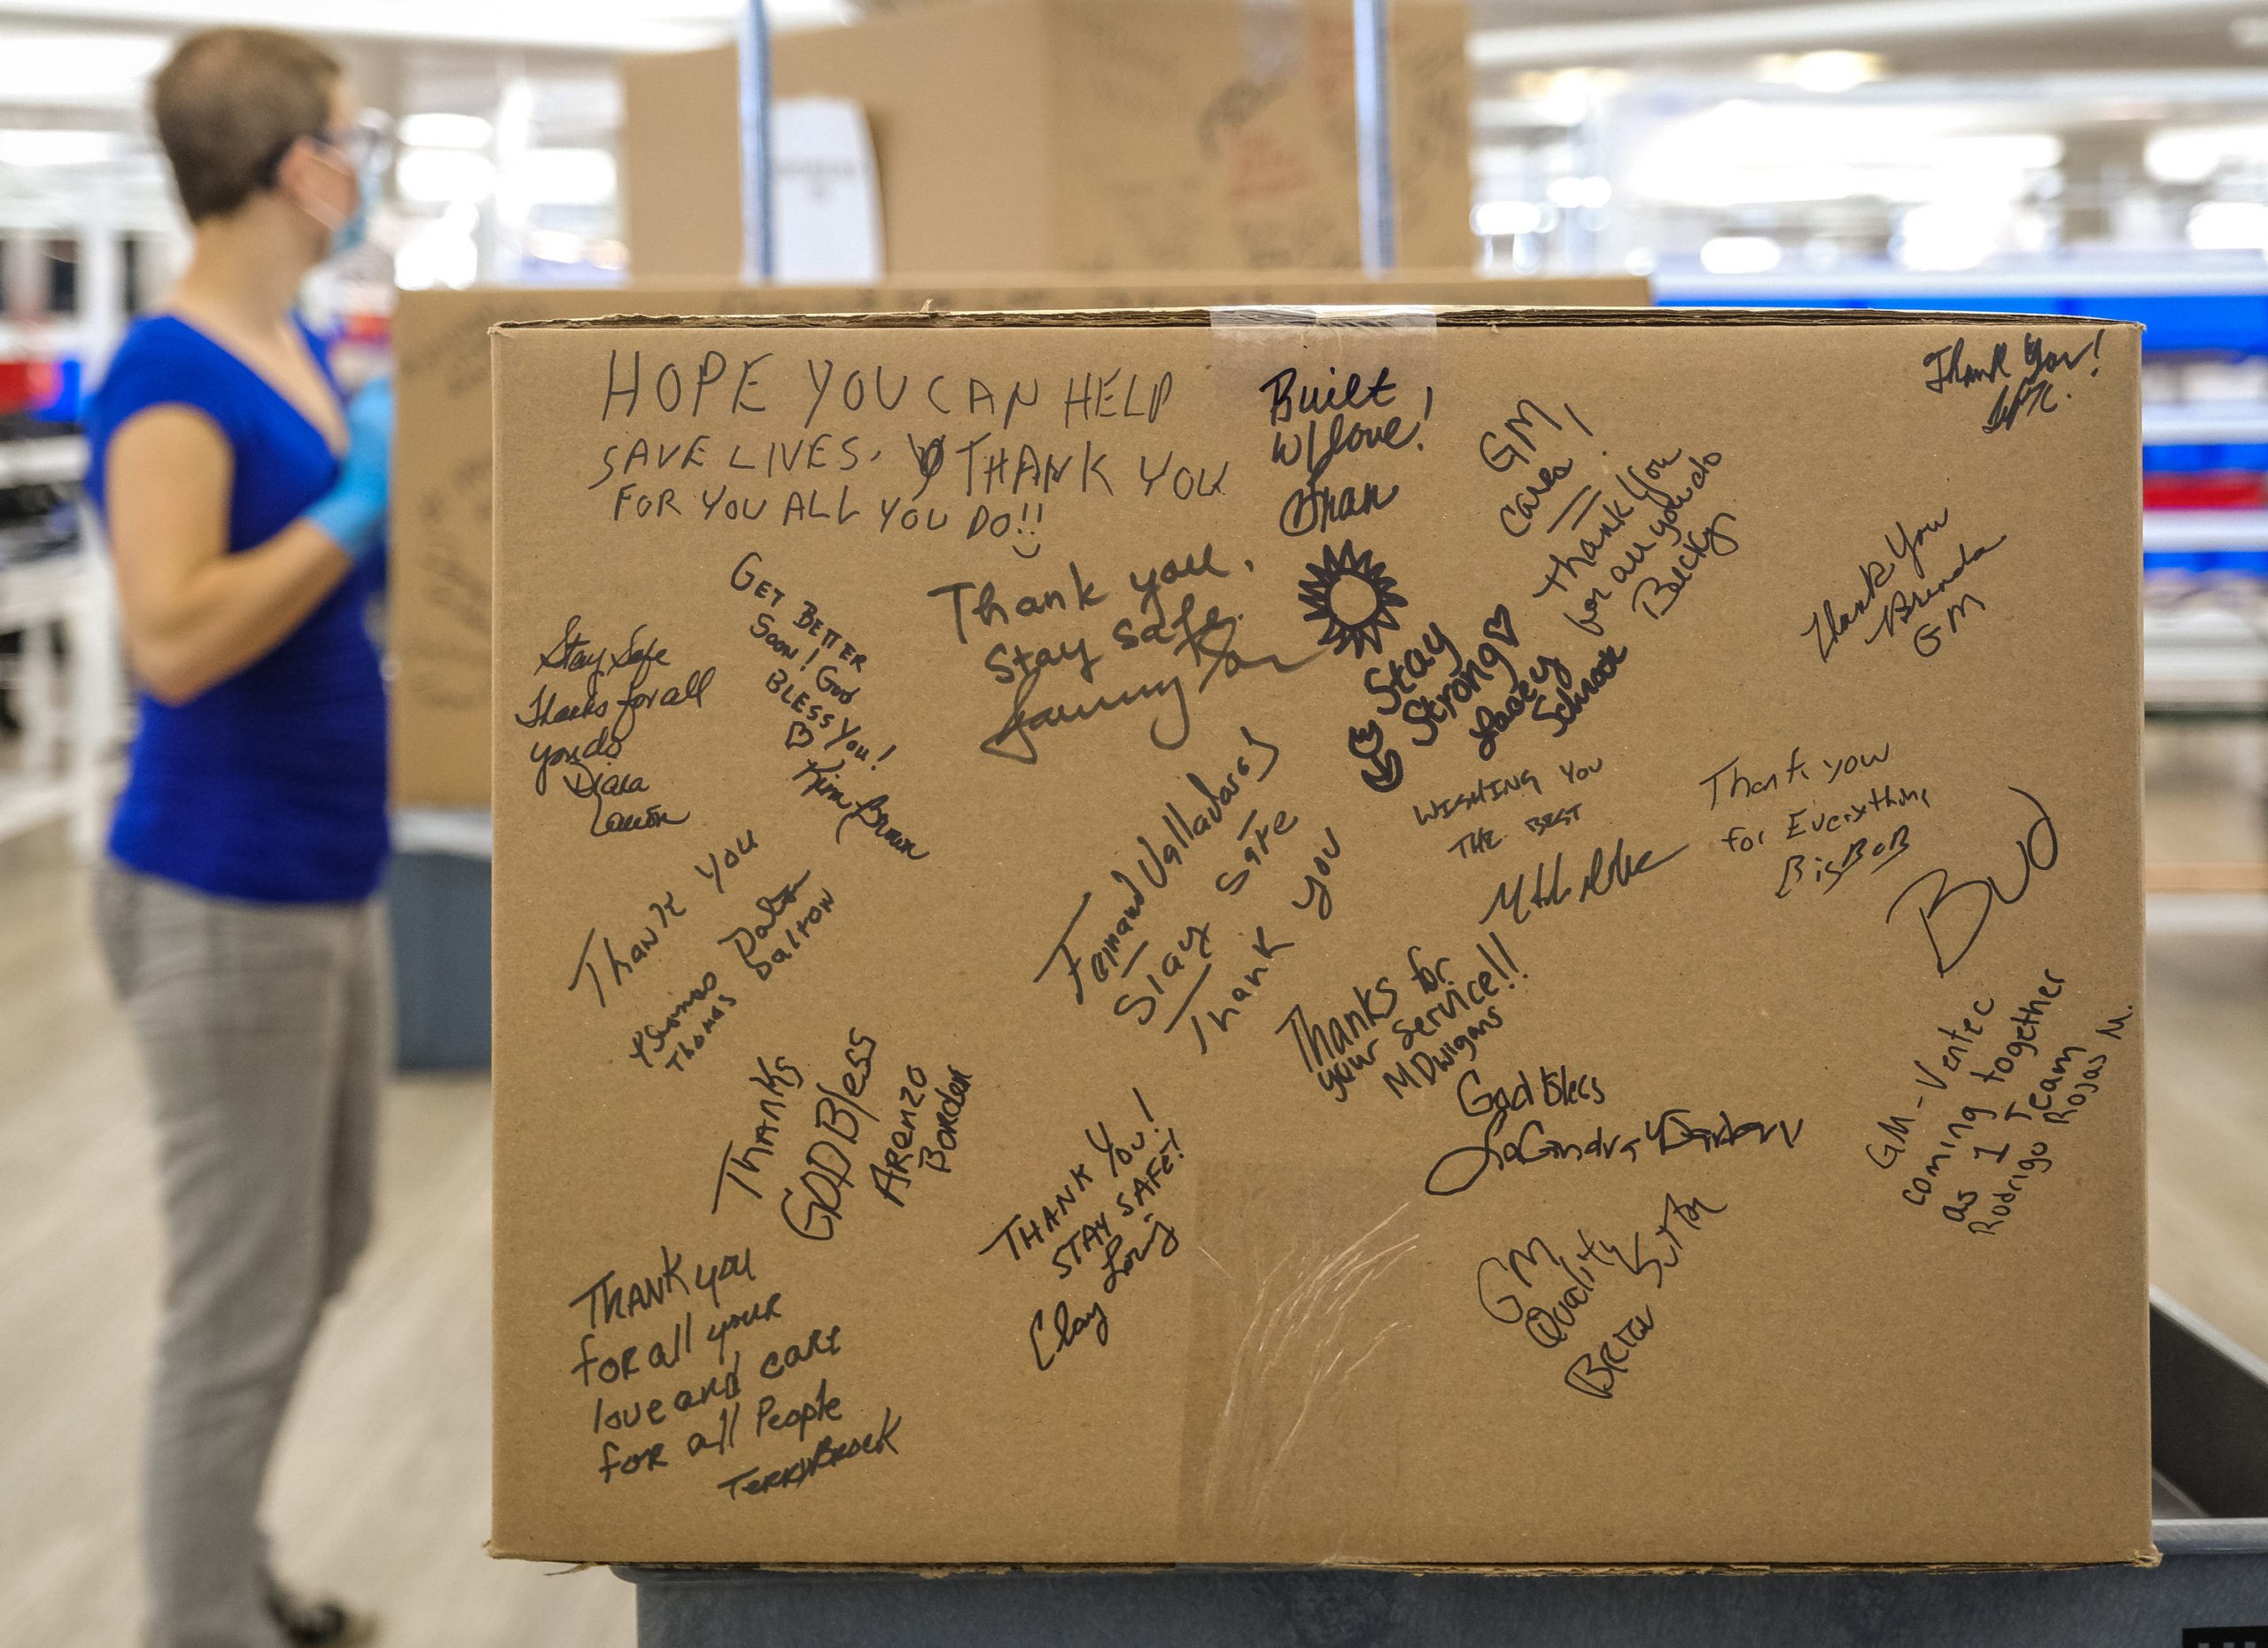 HOPE YOU CAN HELP
SAVE LIVES. THANK YOU
FOR YOU ALL YOU DO!!
Built
w/love!
GM
Cares!
Thank You
for all you do
Becky
Thank You!
Thank You
Brenda
GM
GET BETTER
Soon! God
BLESS YOU!
Kim Brown
Thank you,
Stay safe.
Stay
Strong
Lacey
Schrock
Stay Safe
Thanks for all
you do
Diana
Fernand Valladares
Stay Safe
Thank you
WISHING YOU
THE BEST
Thank you
for Everything
BigBoB
Bud
Thank You
Thomas Dalton
Thomas Dalton
Thanks for
your service!!
MDwigans
GM-Ventec
coming together
as 1 Team
Rodrigo Rojas M.
Thanks
GOD Bless
Arenzo
Borden
God bless
THANK YOU!
STAY SAFE!
Clay Loving
GM
Quality
Bria Sutton
THANK you
for all your
love and care
for all People
Terry Brock